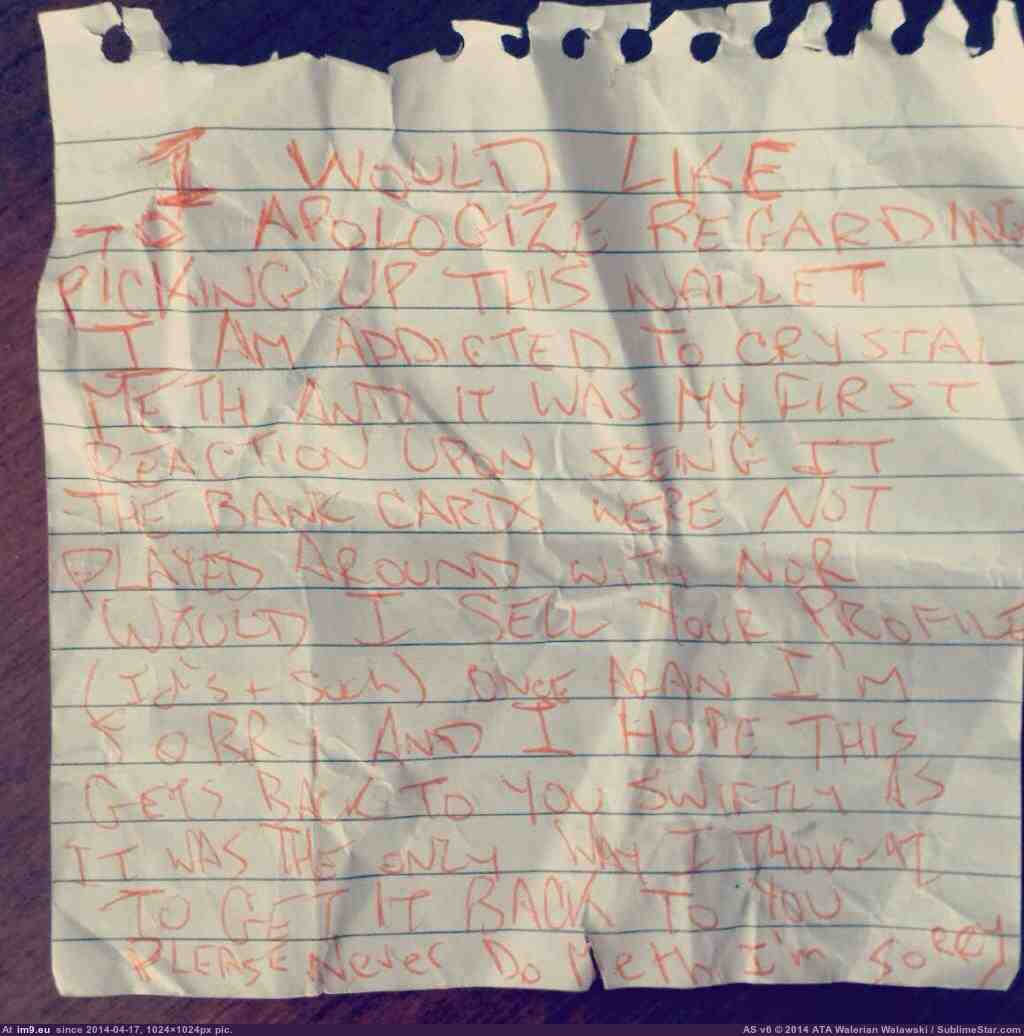 I WOULD LIKE
TO APOLOGIZE REGARDING
PICKING UP THIS WALLET
I AM ADDICTED TO CRYSTAL
METH AND IT WAS MY FIRST
REACTION UPON SEEING IT
THE BANK CARDS WERE NOT
PLAYED AROUND WITH NOR
WOULD I SELL YOUR PROFILE
(Id's + Such) ONCE AGAIN I'M
SORRY AND I HOPE THIS
GETS BACK TO YOU SWIFTLY AS
IT WAS THE ONLY WAY I THOUGHT
TO GET IT BACK TO YOU
PLEASE Never Do Meth I'm SORRY
At im9.eu since 2014-04-17, 1024×1024px pic. AS v6 © 2014 ATA Walerian Walawski / SublimeStar.com